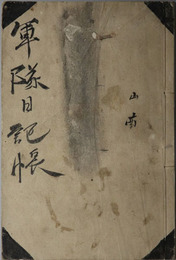 軍隊日記帳
山南